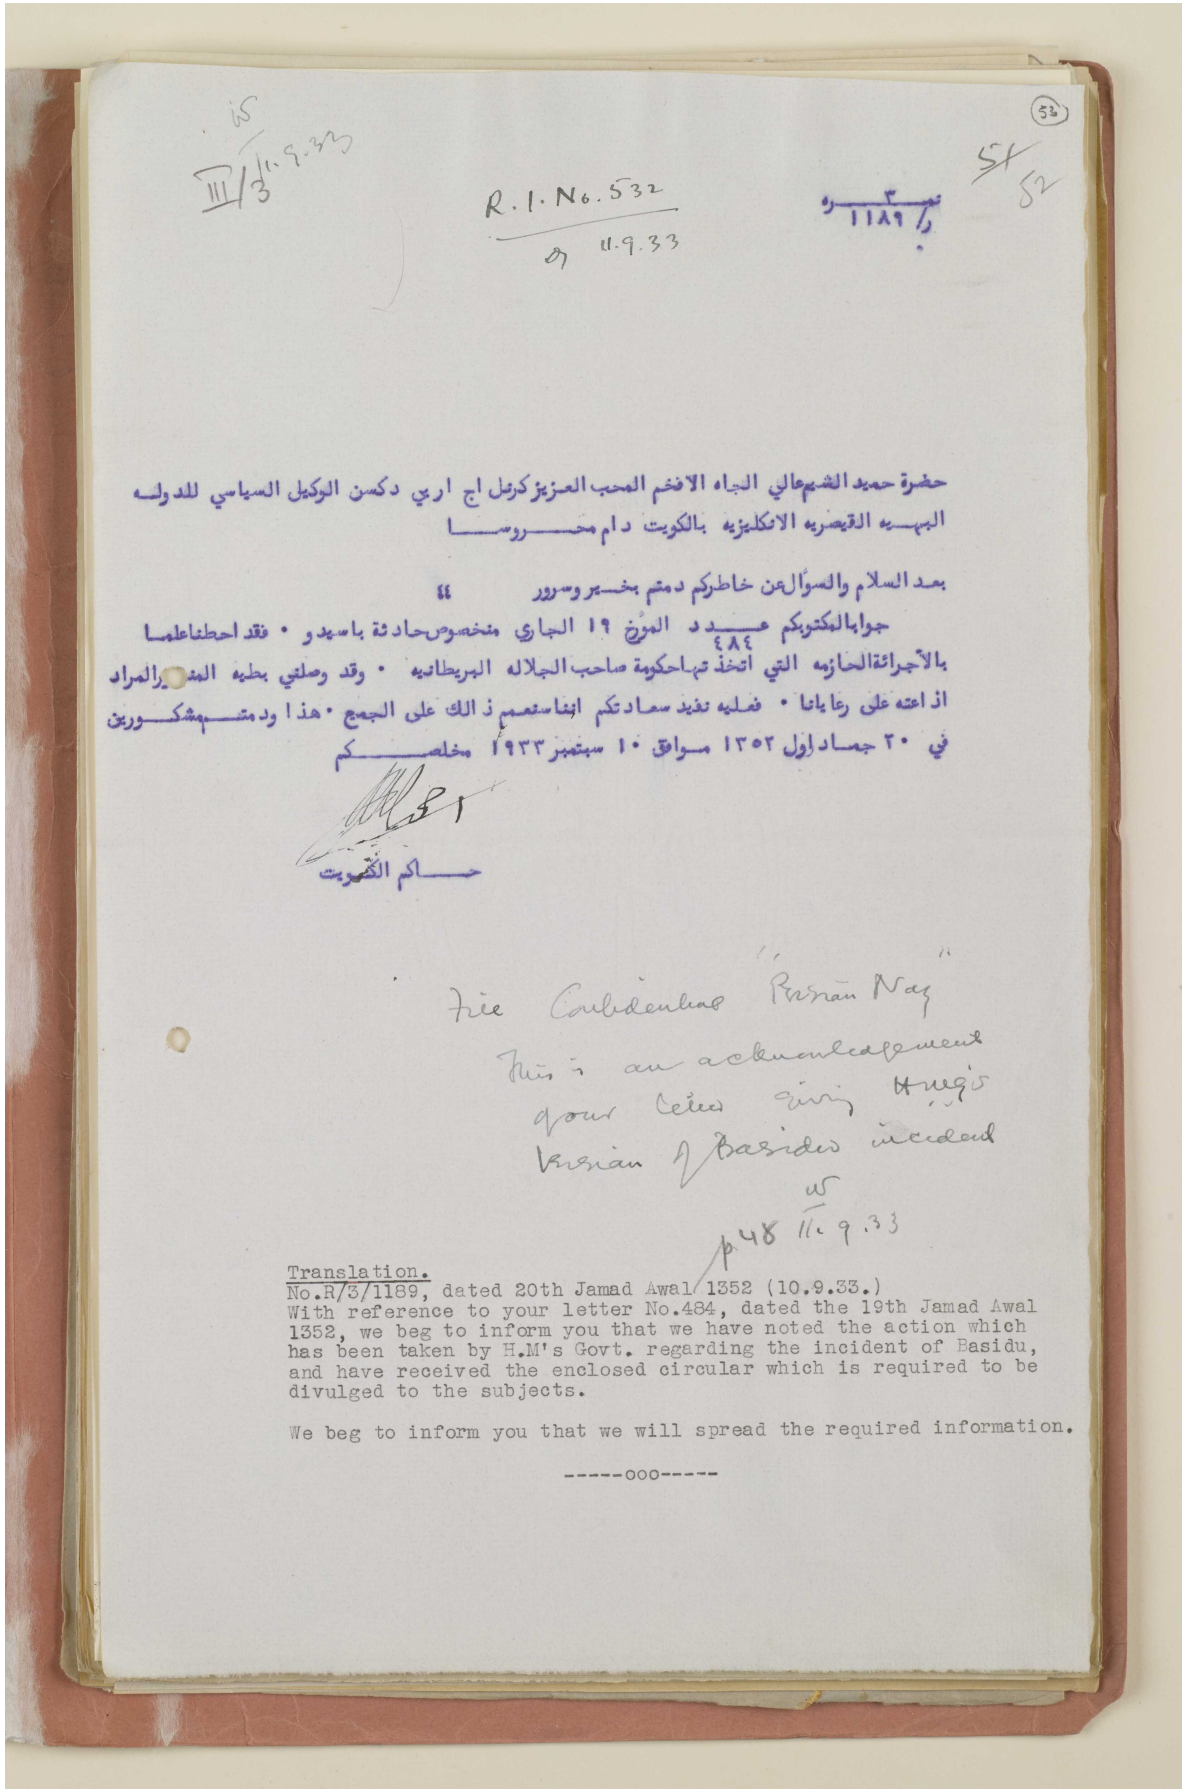 53
51
52
W
11.9.33
III/3
R.I. No. 532
11.9.33
نمـــ٣ـــره
ر/ ١١٨٩
حضرة حميد الشيم عالي الجاه الافخم المحب العزيز كرنل اج اربي دكسن الوكيل السياسي للدولـــه
البهـــيه القيصريه الانكليزيه بالكويت دام محـــــروســـــا
بعد السلام والسوال عن خاطركم دمتم بخـــير وسرور ٤٤
جوابا لمكتوبكم عـــــدد ٤٨٤ المؤرخ ١٩ الجاري مخصوص حادثة باسيدو ٠ فقد احطنا علمـــا
بالاجرائة الحازمه التي اتخذتها حكومة صاحب الجلاله البريطانيه ٠ وقد وصلني بطيه المراد
اذاعته على رعايانا ٠ فعليه نفيد سعادتكم اننا سنعمم ذالك على الجمع ٠ هذا ودمتـــم مشكـــورين
في ٢٠ جمـاد اول ١٣٥٢ مــوافق ١٠ سبتمبر ١٩٣٣ مخلصـــــكم
حـــــاكم الكـــويت
File Confidential "Persian Navy"
This is an acknowledgement
of our letter giving HMG's
version of Basidu incident
W
11.9.33
p.48
Translation.
No.R/3/1189, dated 20th Jamad Awal 1352 (10.9.33.)
With reference to your letter No.484, dated the 19th Jamad Awal
1352, we beg to inform you that we have noted the action which
has been taken by H.M's Govt. regarding the incident of Basidu,
and have received the enclosed circular which is required to be
divulged to the subjects.
We beg to inform you that we will spread the required information.
-----ooo-----